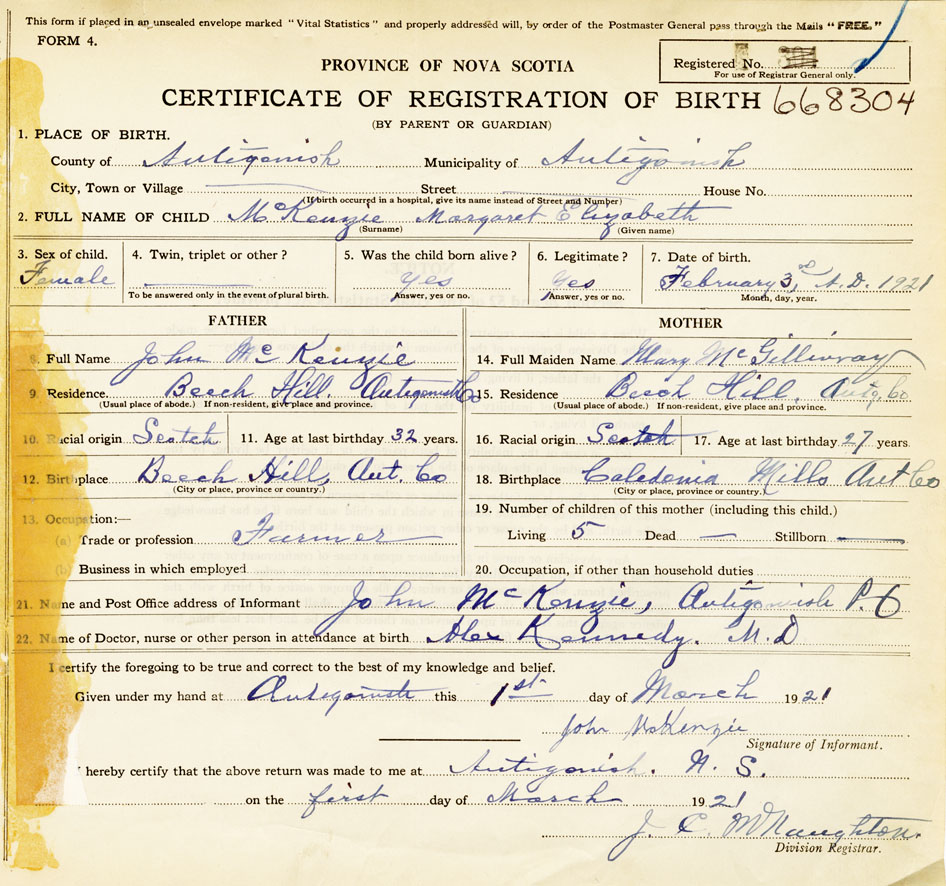 This form if placed in an unsealed envelope marked "Vital Statistics" and properly addressed will, by order of the Postmaster General pass through the Mails "FREE."
FORM 4.
Registered No.
For use of Registrar General only.
PROVINCE OF NOVA SCOTIA
CERTIFICATE OF REGISTRATION OF BIRTH 668304
(BY PARENT OR GUARDIAN)
1. PLACE OF BIRTH.
County of Antigonish Municipality of Antigonish
City, Town or Village Street House No.
(If birth occurred in a hospital, give its name instead of Street and Number)
2. FULL NAME OF CHILD McKenzie Margaret Elizabeth
(Surname) (Given name)
3. Sex of child. 4. Twin, triplet or other? 5. Was the child born alive? 6. Legitimate? 7. Date of birth.
Female Yes Yes February 3rd, A.D. 1921
To be answered only in the event of plural birth. Answer, yes or no. Answer, yes or no. Month, day, year.
FATHER MOTHER
8. Full Name John McKenzie 14. Full Maiden Name Mary McGillivray
9. Residence Beech Hill. Antigonish Co 15. Residence Beech Hill, Antg. Co
(Usual place of abode.) If non-resident, give place and province. (Usual place of abode.) If non-resident, give place and province.
10. Racial origin Scotch 11. Age at last birthday 32 years. 16. Racial origin Scotch 17. Age at last birthday 27 years.
12. Birthplace Beech Hill, Ant. Co 18. Birthplace Caledonia Mills Ant Co
(City or place, province or country.) (City or place, province or country.)
13. Occupation:— 19. Number of children of this mother (including this child.)
(a) Trade or profession Farmer Living 5 Dead — Stillborn —
(b) Business in which employed 20. Occupation, if other than household duties
21. Name and Post Office address of Informant John McKenzie, Antigonish P.O
22. Name of Doctor, nurse or other person in attendance at birth Alex Kennedy. M.D
I certify the foregoing to be true and correct to the best of my knowledge and belief.
Given under my hand at Antigonish this 1st day of March 1921
John McKenzie
Signature of Informant.
I hereby certify that the above return was made to me at Antigonish. N. S.
on the first day of March 1921
J. C. McNaughton.
Division Registrar.